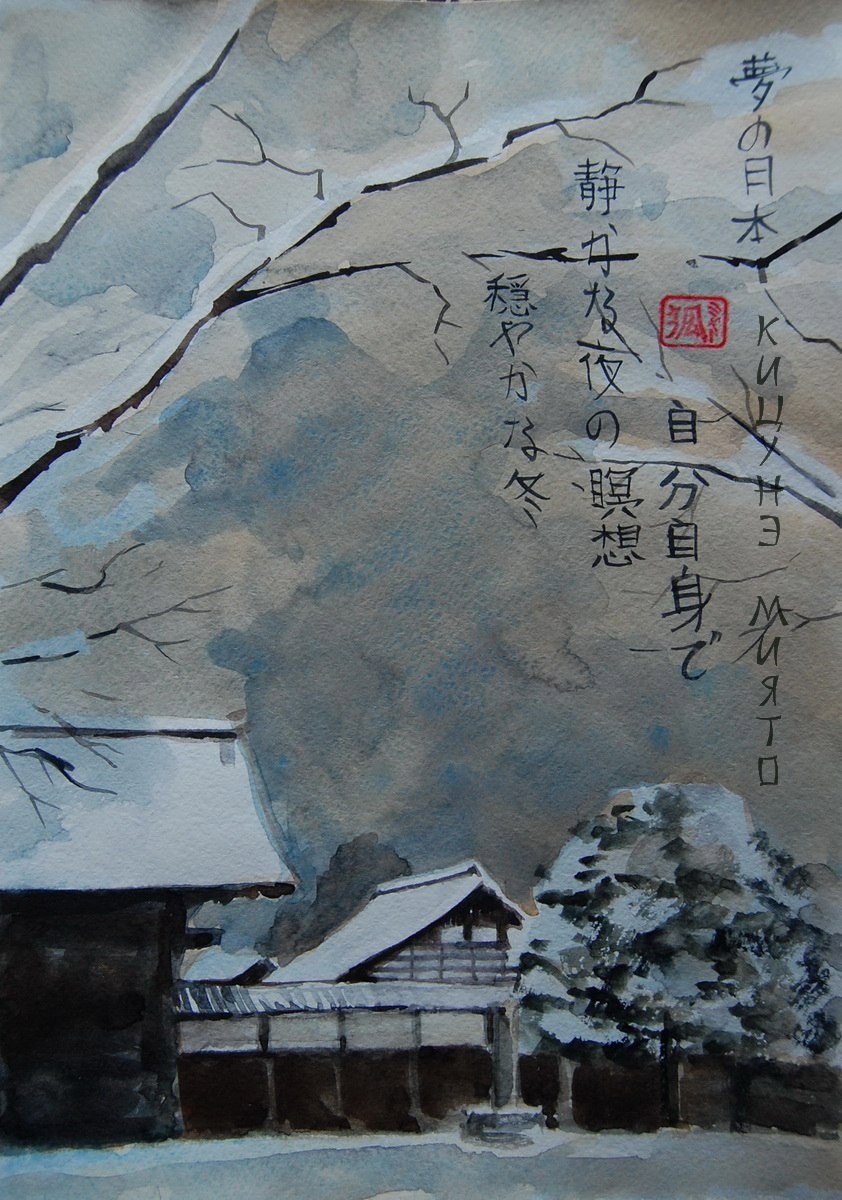 夢の日本
КИЦУНЭ МИЯТО
狐
自分自身で
静かな夜の瞑想
穏やかな冬